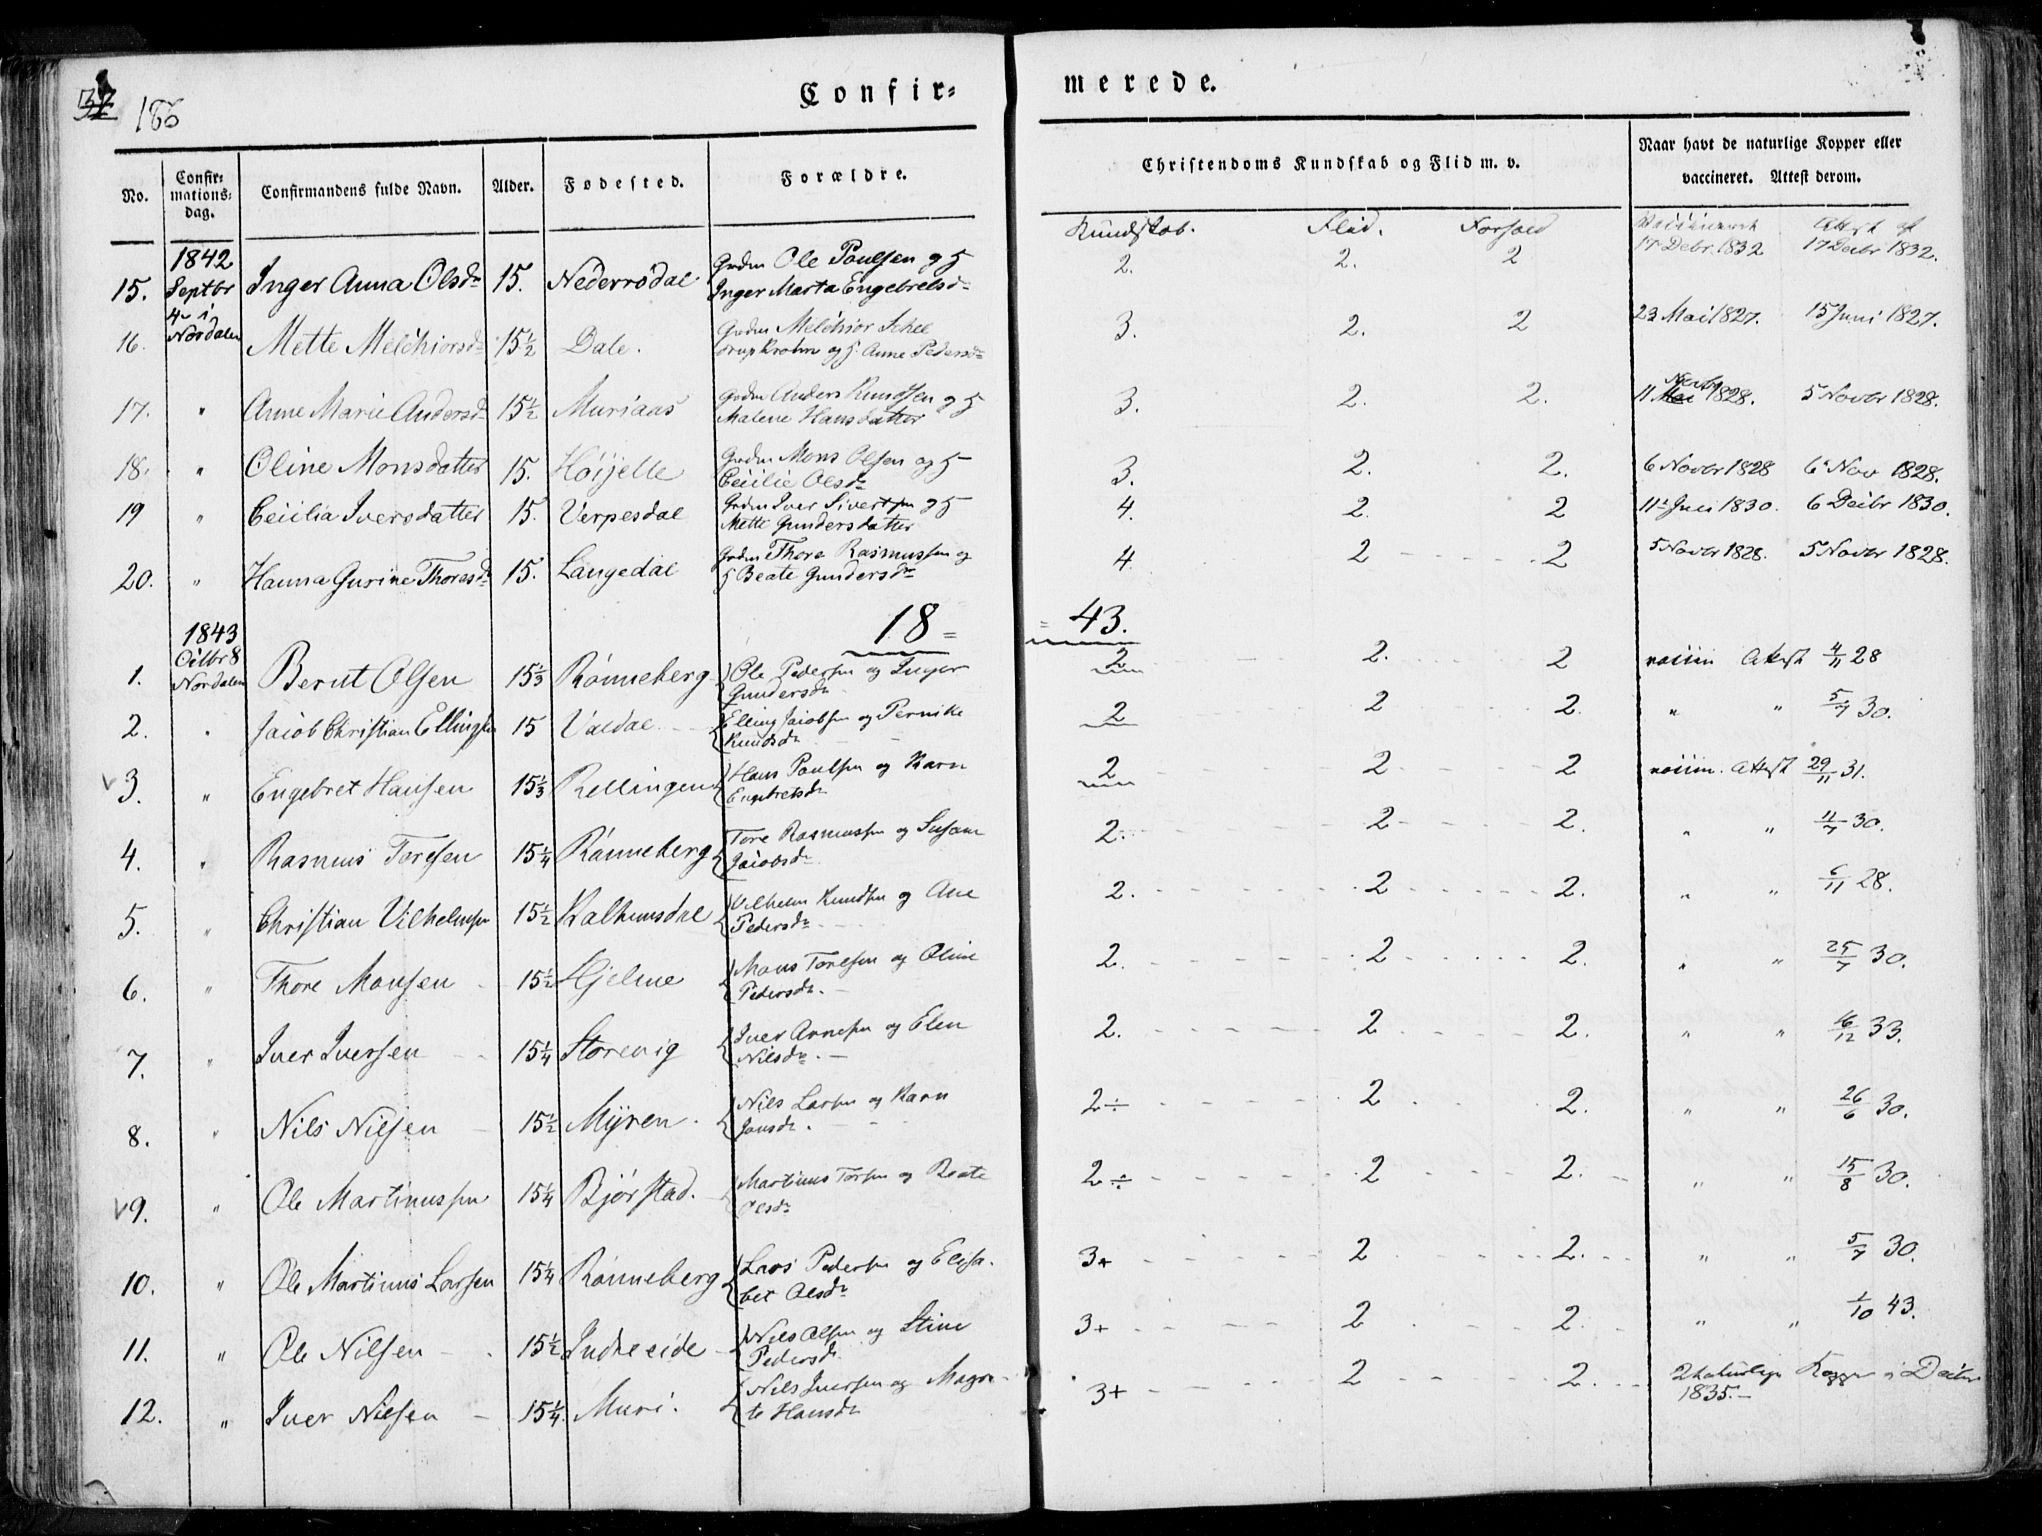 186
Confir=
merede.
No.
Confir=
mations=
dag.
Confirmandens fulde Navn.
Alder.
Fødested.
Forældre.
Christendoms Kundskab og Flid m. v.
Naar havt de naturlige Kopper eller
vaccineret. Attest derom.
Kundskab. Flid. Forhold
1842
15. Septbr Inger Anna Olsdr 15. Nederrødal Grdm Ole Poulsen og H
Inger Marta Engebretsdr
2. 2. 2 17 Debr 1832 17 Decbr 1832.
4 i
16. Nordalen Mette Melchiorsdr 15½ Dale. Grdm Melchior Schel
drup Krohn og H. Anne Pedersdr
3. 2. 2 23 Mai 1827. 15 Juni 1827.
17. " Anne Marie Andersdr 15½ Muriaas Grdm Anders Knudsen og H
Malene Hansdatter
3. 2. 2. 11 1828. 5 Novbr 1828.
18. " Oline Monsdatter 15. Høijelle Grdm Mons Olsen og H
Cecilie Olsdr
3. 2. 2. 6 Novbr 1828 6 Nov 1828.
19 " Cecilia Iversdatter 15. Verpesdal Grdm Iver Sivertsen og H
Mette Gundersdatter
4. 2. 2 11 Juni 1830. 6 Decbr 1830.
20. " Hanna Gurine Thoresdr 15. Langedal Grdm Thore Rasmussen og
H Beate Gundersdr
4. 2 2 5 Novbr 1828. 5 Novbr 1828.
18= =43.
1843
Octbr 8
1. Nordalen Bernt Olsen 15⅓ Rønneberg Ole Pedersen og Inger
Gundersdr
2. 2. 2 vaccin Attest 4/11 28
2. " Jacob Christian Ellingsen 15 Valdal Elling Jacobsen og Pernike
Knudsdr
2 2 2. " " 5/7 30.
v 3. " Engebret Hansen 15⅓ Rellingen Hans Poulsen og Karn
Engebretsdr
2 2 2 vaccin. Attest 29/11 31.
4. " Rasmus Toresen 15¼ Rønneberg Tore Rasmussen og Susane
Jacobsdr
2. 2 2. " " 4/7 30.
5. " Christian Vilhelmsen 15½ Kalhunsdal Vilhelm Knudsen og Ane
Pedersdr
2. 2 2. " " 6/11 28.
6. " Thore Monsen 15½ Hjelme Mons Toresen og Oline
Pedersdr.
2. 2 2. " " 25/7 30.
7. " Iver Iversen 15¼ Storevig Iver Arnesen og Elen
Nilsdr.
2. 2 2. " " 16/12 33.
8. " Nils Nilsen 15½ Mÿren. Nils Larsen og Karn
Jonsdr.
2÷ 2 2. " " 26/6 30.
v 9. " Ole Martinussen 15¼ Bjørstad. Martinus Torsen og Beate
Olsdr
2÷ 2 2. " " 15/8 30.
10. " Ole Martinus Larsen 15¼ Rønneberg Lars Pedersen og Elisa-
bet Olsdr
3+ 2 2. " " 5/7 30.
11. " Ole Nilsen 15½ Indreeide Nils Olsen og Stine
Pedersdr
3+ 2 2. " " 1/10 43.
12. " Iver Nilsen 15¼ Muri. Nils Iversen og Magre-
te Hansdr
3+ 2 2. naturlige Kopper i
1835.